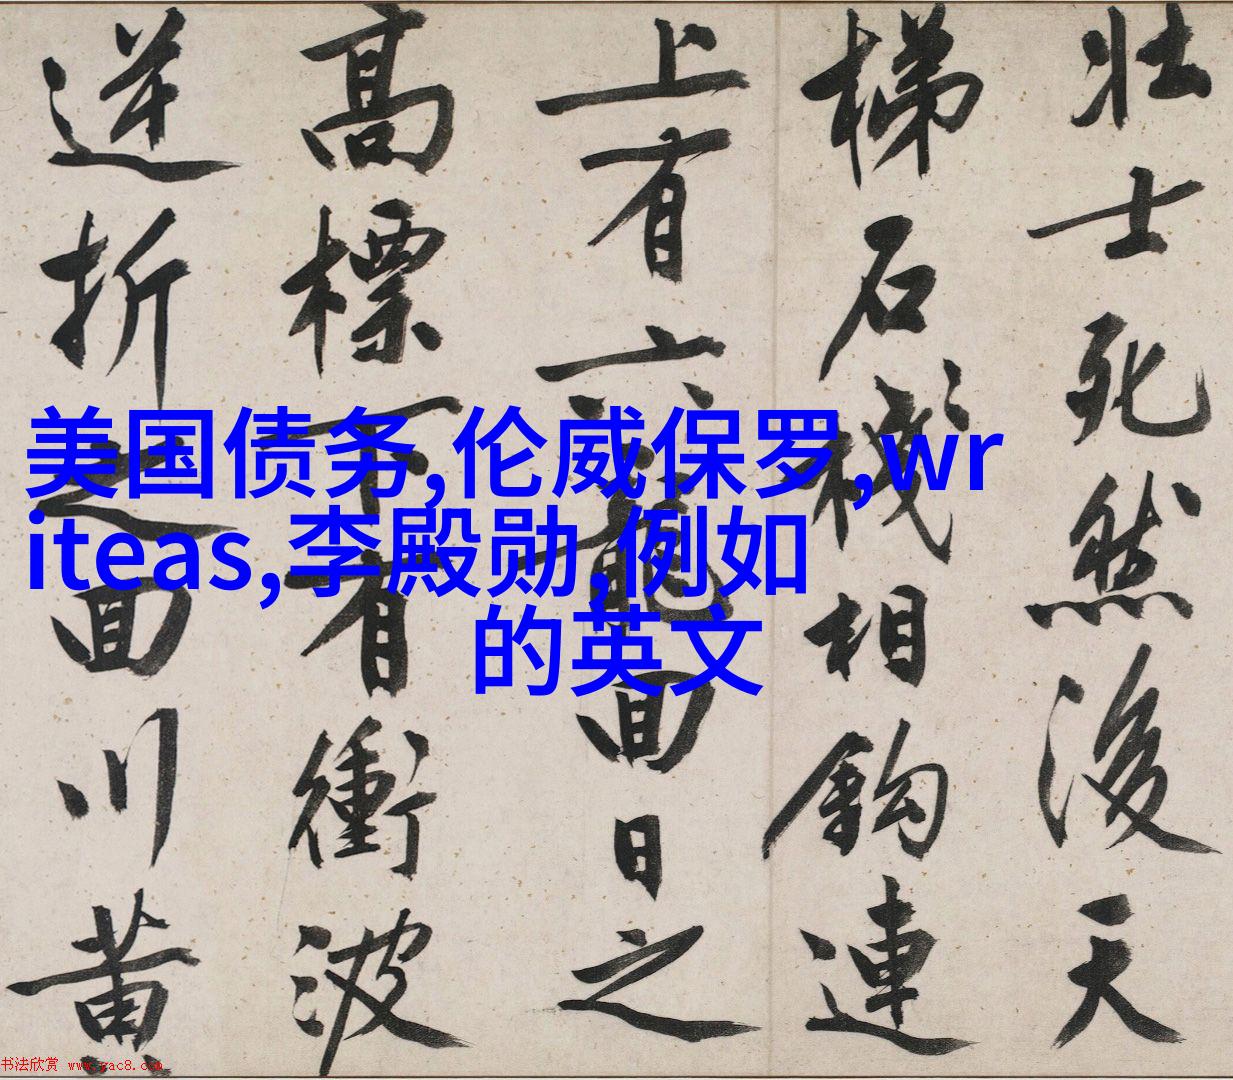 壯士死然後天
梯石棧相鈎連
上有六龍回日之
高標下有衝波
逆折之回川黃
美国债务,伦威保罗,wr
iteas,李殿勋,例如
的英文
书法欣赏 www.yac8.com